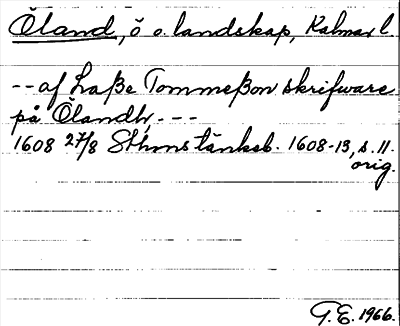 Öland, ö o. landskap, Kalmar l
-- af Laße Tommeßon skrifware
på Ölandh - - -
1608 27/8 Sthms tänkeb. 1608-13, s. 11.
orig.
G. E. 1966.